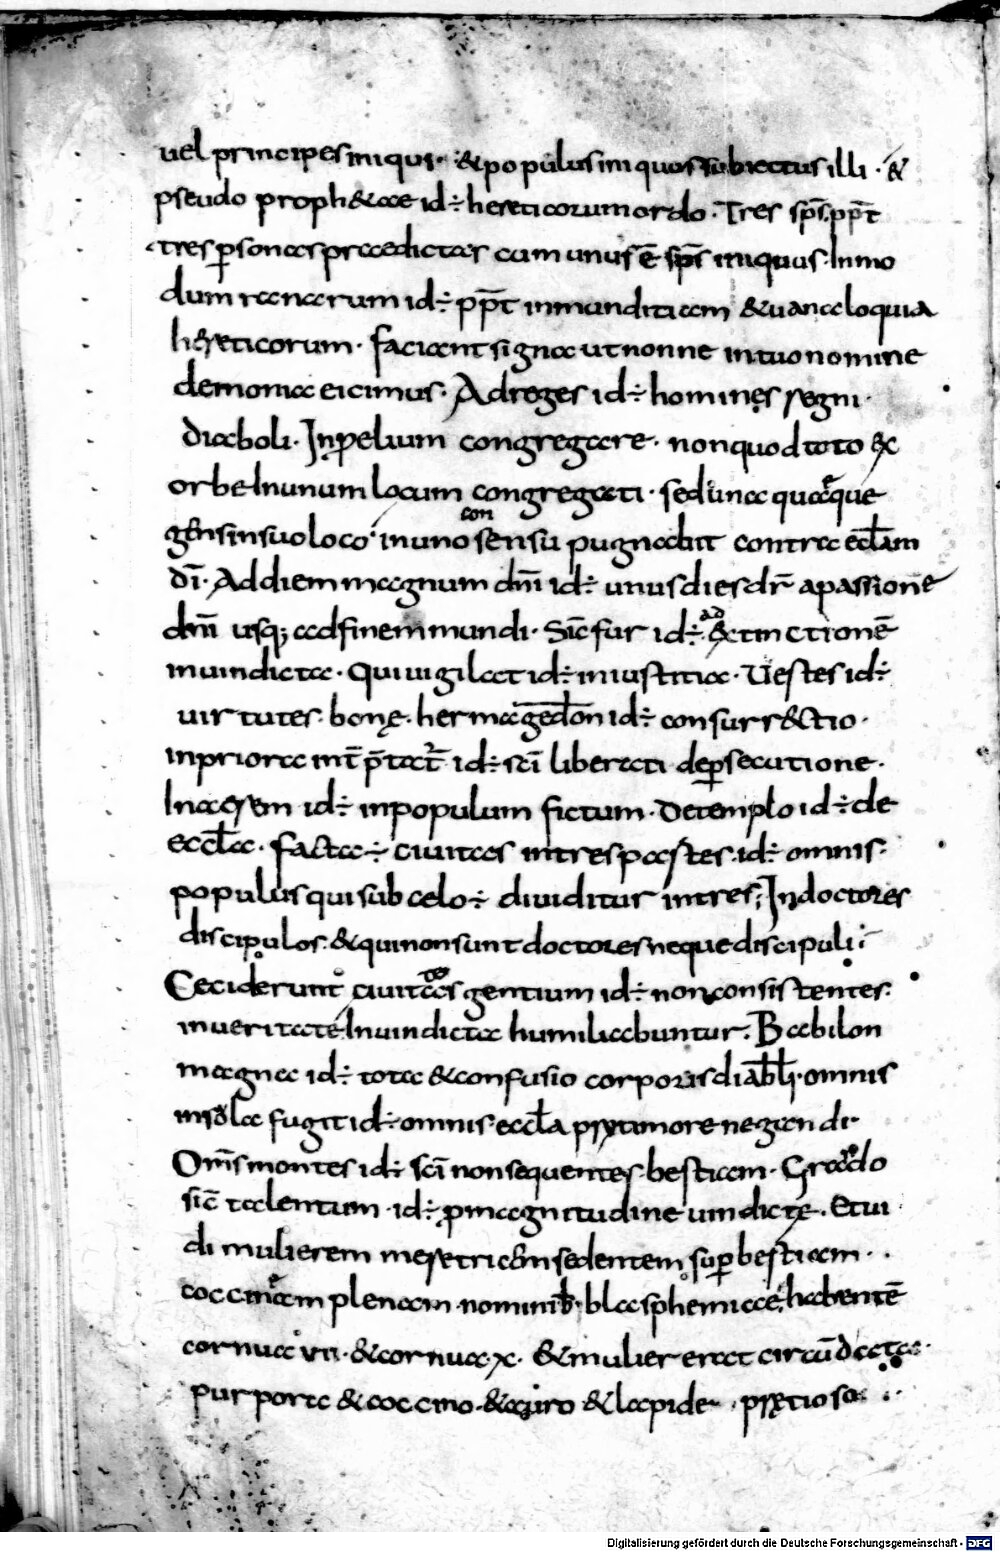 uel principes iniqui· & populus iniquos subiectus illi · &
pseudo proph&ae id÷ hereticorum ordo · Tres sp̄s pp̄t
tres p̱sonas praedictas cum unus ē sp̄s iniquus· In mo
dum ranarum id÷ pp̄t inmunditiam & uana eloquia
hereticorum · faciant signa ut nonne in tuo nomine
demonia eicimus · Ad reges id÷ homines regni·
diaboli· In p̱elium congregare · non quod toto ex
orbe In unum locum congregati · sed una quaeque
gens in suo loco· in uno consensu pugnabit contra eccl̄am
dī· Ad diem magnum dn̄i id÷ unus dies dr̄ a passionē
dn̄i usq; ad finem mundi · Sic̄ fur id÷
in uindicta · Qui uigilat id÷ in iustitia · Uestes id÷
uirtutes bonę· hermagedon id÷ consurr&tio·
in priora id÷ sc̄i liberati de p̱secutione·
id÷ in populum fictum· De templo id÷ de
eccl̄a · facta÷ ciuitas in tres partes· id÷ omnis·
populus qui sub celo÷ diuiditur in tres; In doctores
discipulos· & qui non sunt doctores neque discipuli
Ceciderunt ciuitates gentium id÷ non consistentes·
in ueritate In uindicta humiliabuntur· Babilon
magna id÷ tota & confusio corporis diabl̄i· omnis
insola fugit id÷ omnis eccl̄a timore negandi·
Om̄s montes id÷ sc̄i non sequentes bestiam· Grado
sic̄ talentum · id÷ p̱ magnitudine uindictę · Et ui
di mulierem meretricem sedentem sup̱ bestiam · ·
coccineam plenam nominib· blasphemiae, habentē
cornua vii· & cornua x· & mulier erat circūdata·
purpora & coccino· & auro & lapide pretioso
Digitalisierung gefördert durch die Deutsche Forschungsgemeinschaft - DFG